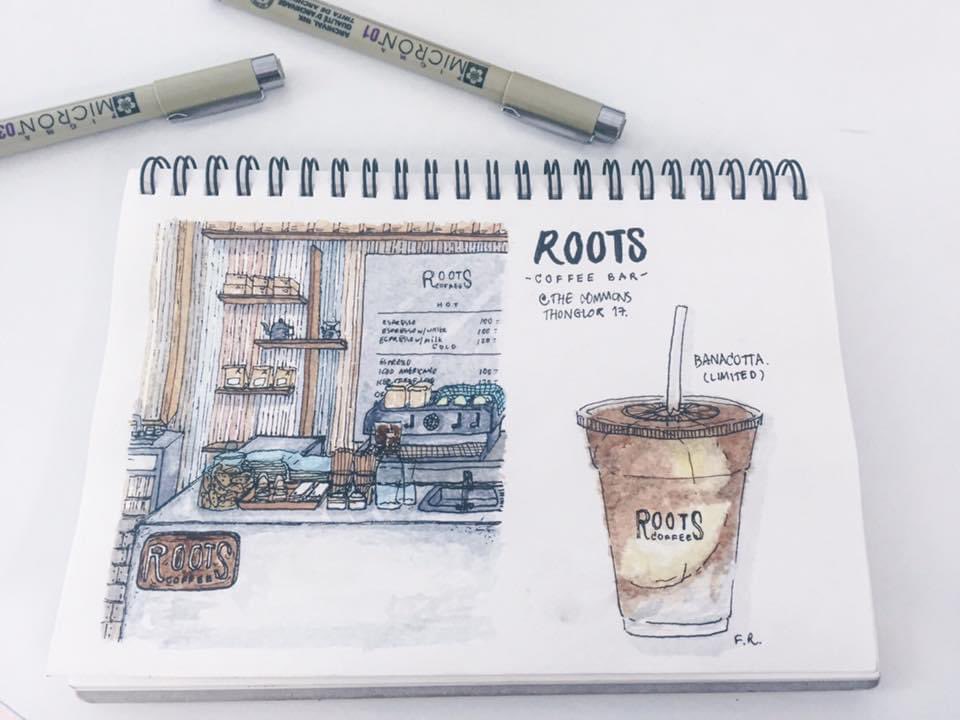 PIGMA
MICRON 01
ARCHIVAL INK
QUALITÉ D'ARCHIVAGE
PIGMA
MICRON 03
ROOTS
-COFFEE BAR-
@THE COMMONS
THONGLOR 17.
ROOTS
COFFEE
HOT
ESPRESSO 100
ESPRESSO W/WATER 100
ESPRESSO W/MILK 120
COLD
ESPRESSO
ICED AMERICANO
ROOTS
COFFEE
BANACOTTA.
(LIMITED)
ROOTS
COFFEE
F.R.